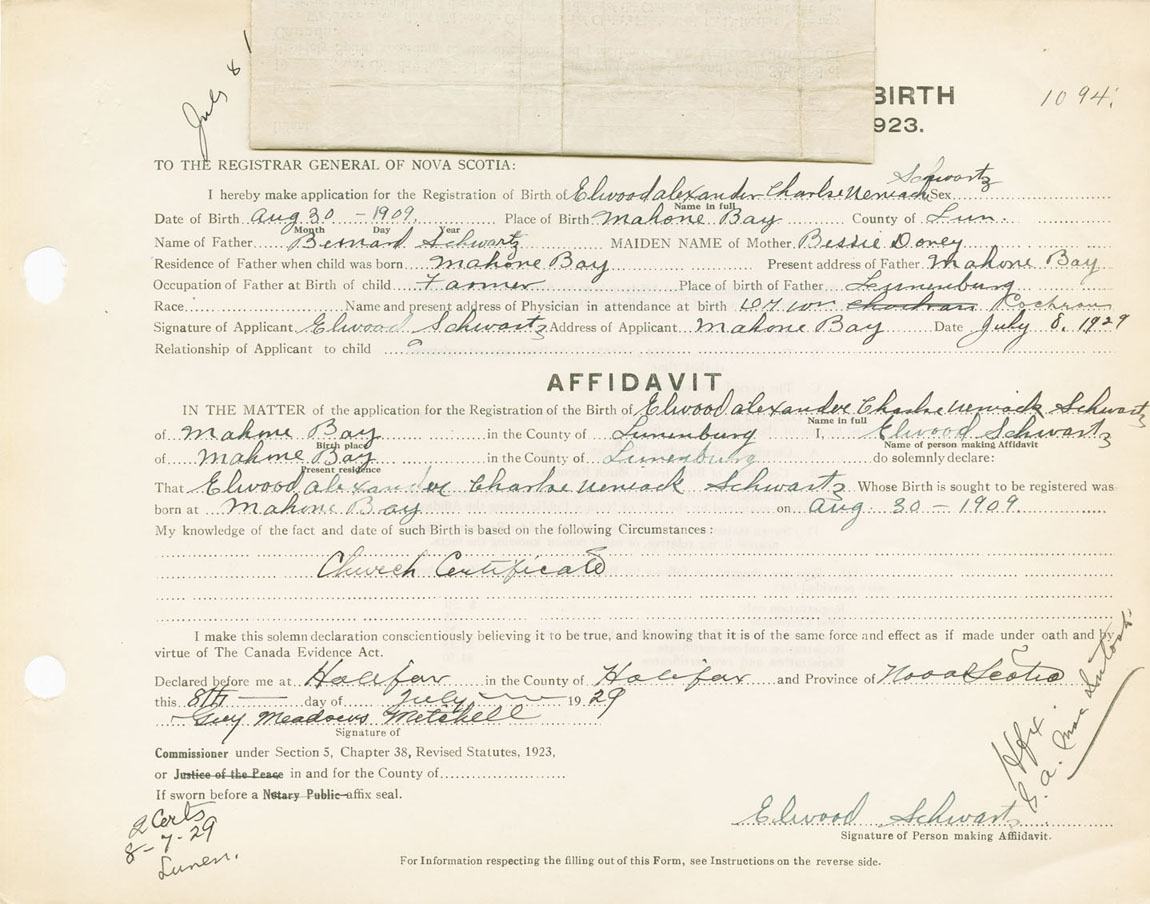 July 8
BIRTH
1094.
923.
TO THE REGISTRAR GENERAL OF NOVA SCOTIA:
Schwartz
I hereby make application for the Registration of Birth of Elwood alexander Charlse Sex
Name in full
Date of Birth Aug 30 - 1909 Place of Birth Mahone Bay County of Lun.
Month Day Year
Name of Father Bernard Schwartz MAIDEN NAME of Mother Bessie Doney
Residence of Father when child was born Mahone Bay Present address of Father Mahone Bay
Occupation of Father at Birth of child Farmer Place of birth of Father Lunenburg
Race Name and present address of Physician in attendance at birth Cochran
Signature of Applicant Elwood Schwartz Address of Applicant Mahone Bay Date July 8. 1929
Relationship of Applicant to child
AFFIDAVIT
IN THE MATTER of the application for the Registration of the Birth of Elwood alexander Charlse Schwartz
Name in full
of Mahone Bay in the County of Lunenburg I, Elwood Schwartz
Birth place Name of person making Affidavit
of Mahone Bay in the County of Lunenburg do solemnly declare:
Present residence
That Elwood alexander Charlse Schwartz Whose Birth is sought to be registered was
born at Mahone Bay on Aug 30 - 1909
My knowledge of the fact and date of such Birth is based on the following Circumstances:
Church Certificate
I make this solemn declaration conscientiously believing it to be true, and knowing that it is of the same force and effect as if made under oath and by
virtue of The Canada Evidence Act.
Declared before me at Halifax in the County of Halifax and Province of Nova Scotia
this 8th day of July 1929
Guy Meadows Mitchell
Signature of
Commissioner under Section 5, Chapter 38, Revised Statutes, 1923,
or Justice of the Peace in and for the County of
If sworn before a Notary Public affix seal.
2 Certs
8-7-29
Lunen.
Hfx.
Elwood Schwartz
Signature of Person making Affidavit.
For Information respecting the filling out of this Form, see Instructions on the reverse side.